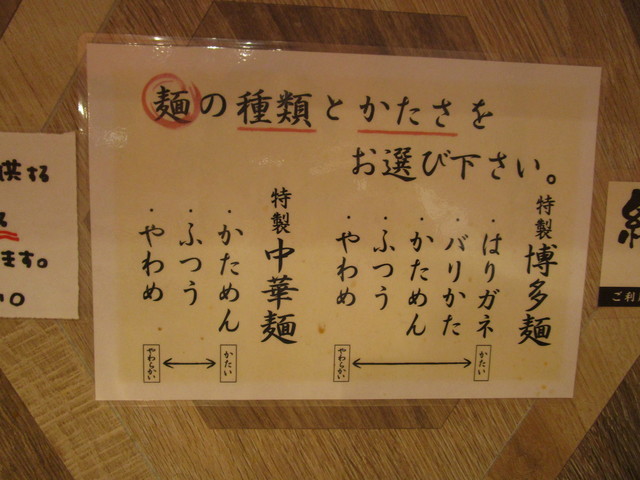 麺の種類とかたさを
お選び下さい。
特製博多麺
・はりガネ
・バリかた
・かためん
・ふつう
・やわめ
かたい
やわらかい
特製中華麺
・かためん
・ふつう
・やわめ
かたい
やわらかい
供する
ます。